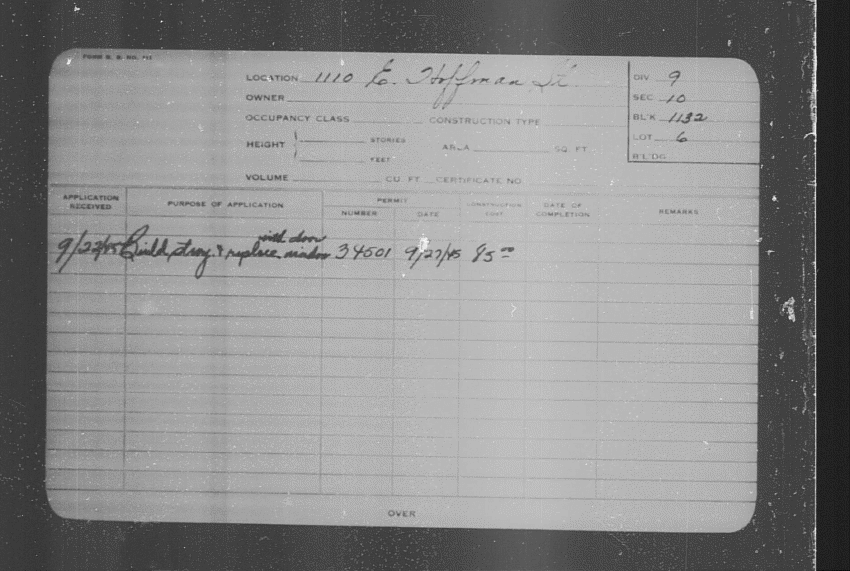 LOCATION 1110 E. Hoffman St.
DIV. 9
OWNER
SEC. 10
OCCUPANCY CLASS CONSTRUCTION TYPE
BL'K 1132
LOT 6
HEIGHT STORIES AREA SQ. FT.
FEET
BL'DG
VOLUME CU. FT. CERTIFICATE NO
APPLICATION RECEIVED PURPOSE OF APPLICATION PERMIT NUMBER DATE CONSTRUCTION COST DATE OF COMPLETION REMARKS
with door
9/22/45 Build & replace window 34501 9/27/45 85.00
OVER